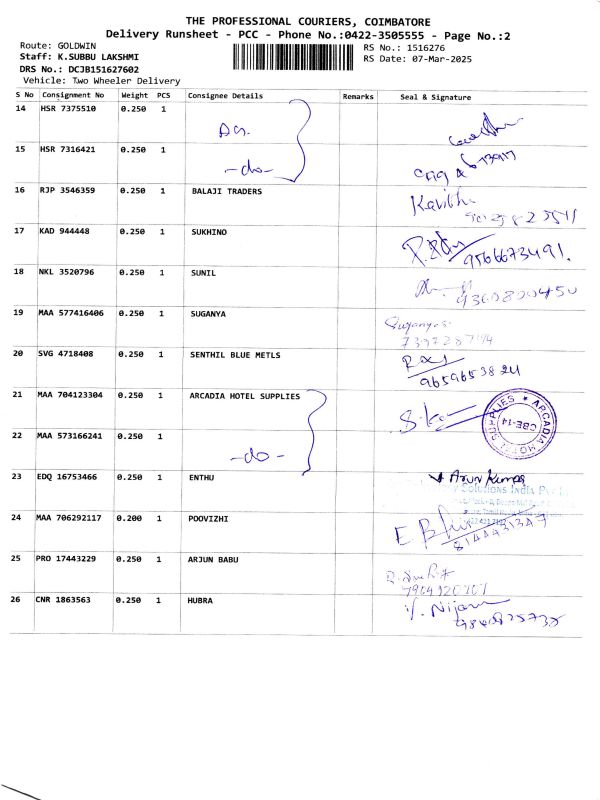 THE PROFESSIONAL COURIERS, COIMBATORE
Delivery Runsheet - PCC - Phone No.:0422-3505555 - Page No.:2
Route: GOLDWIN
RS No.: 1516276
Staff: K.SUBBU LAKSHMI
RS Date: 07-Mar-2025
DRS No.: DCJB151627602
Vehicle: Two Wheeler Delivery
S No Consignment No Weight PCS Consignee Details Remarks Seal & Signature
14 HSR 7375510 0.250 1
15 HSR 7316421 0.250 1 -do-
16 RJP 3546359 0.250 1 BALAJI TRADERS Kavitha
17 KAD 944448 0.250 1 SUKHINO 9566673491.
18 NKL 3520796 0.250 1 SUNIL 9360800450
19 MAA 577416406 0.250 1 SUGANYA Suganya
20 SVG 4718408 0.250 1 SENTHIL BLUE METLS
9659653824
21 MAA 704123304 0.250 1 ARCADIA HOTEL SUPPLIES
ARCADIA HOTEL SUPPLIES
CBE-14
22 MAA 573166241 0.250 1 -do-
23 EDQ 16753466 0.250 1 ENTHU Arun Kumar
Solutions India Pvt
24 MAA 706292117 0.200 1 POOVIZHI
25 PRO 17443229 0.250 1 ARJUN BABU
26 CNR 1863563 0.250 1 HUBRA